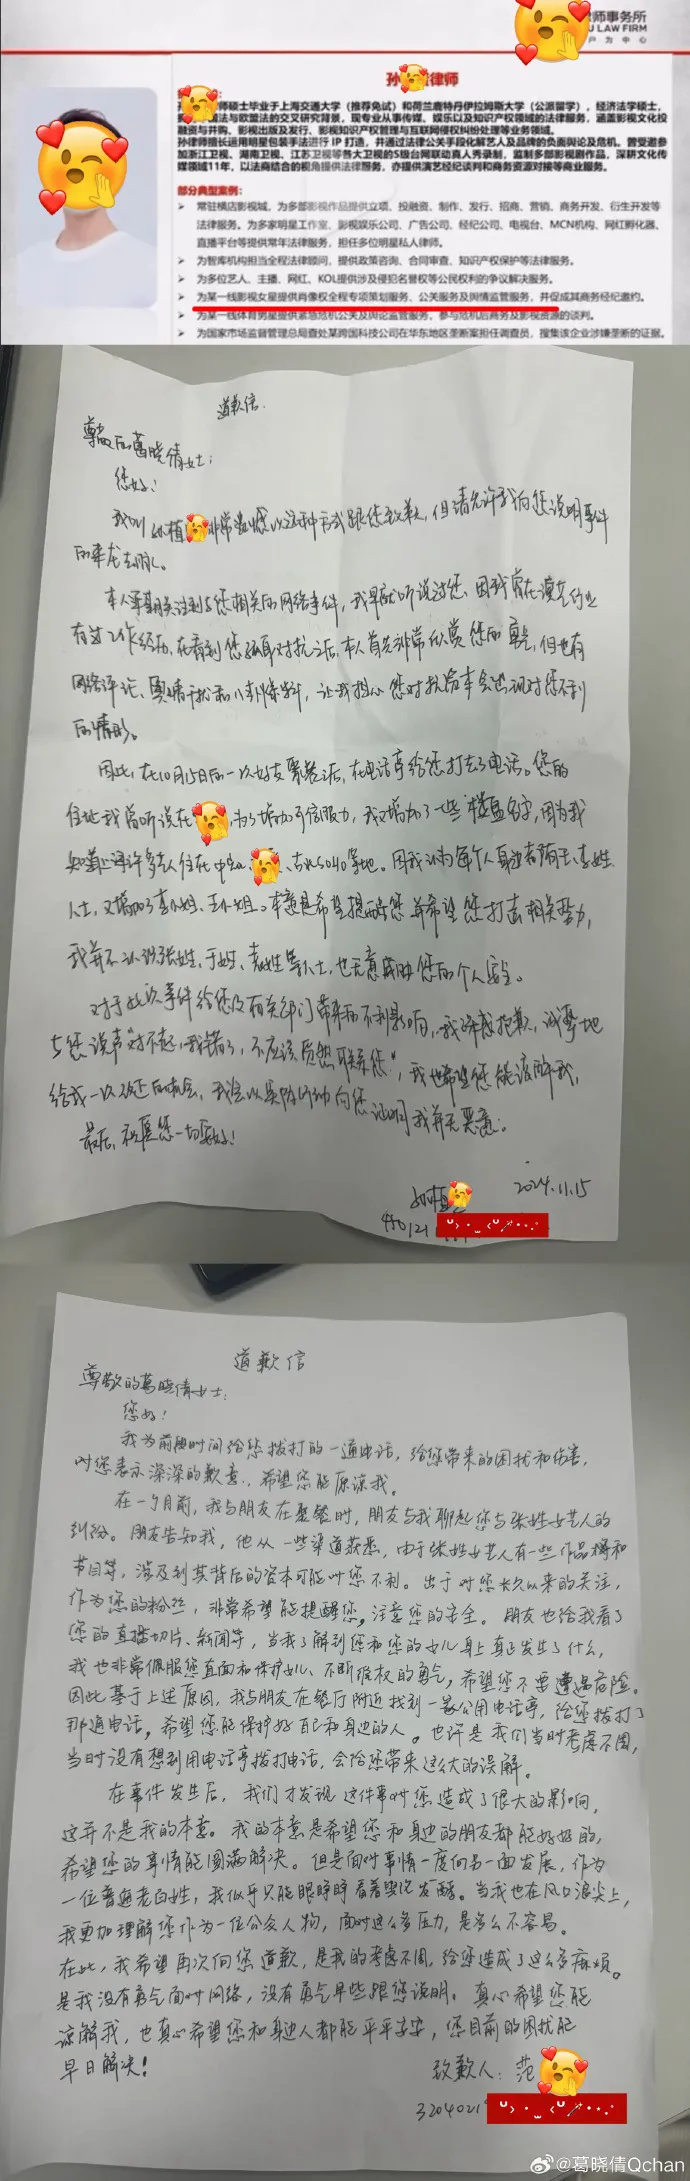 律师事务所
U LAW FIRM
户 为 中 心
孙 律师
师硕士毕业于上海交通大学（推荐免试）和荷兰鹿特丹伊拉姆斯大学（公派留学），经济法学硕士，
法与欧盟法的交叉研究背景，现专业从事传媒、娱乐以及知识产权领域的法律服务，涵盖影视文化投
融资与并购、影视出版及发行、影视知识产权管理与互联网侵权纠纷处理等业务领域。
孙律师擅长运用明星包装手法进行 IP 打造，并通过法律公关手段化解艺人及品牌的负面舆论及危机。曾受邀参
加浙江卫视、湖南卫视、江苏卫视等各大卫视的S级台网联动真人秀录制，监制多部影视剧作品，深耕文化传
媒领域11年，以法商结合的视角提供法律服务，亦提供演艺经纪谈判和商务资源对接等商业服务。
部分典型案例：
常驻横店影视城，为多部影视作品提供立项、投融资、制作、发行、招商、营销、商务开发、衍生开发等
法律服务。为多家明星工作室、影视娱乐公司、广告公司、经纪公司、电视台、MCN机构、网红孵化器、
直播平台等提供常年法律服务，担任多位明星私人律师。
为智库机构担当全程法律顾问，提供政策咨询、合同审查、知识产权保护等法律服务。
为多位艺人、主播、网红、KOL提供涉及侵犯名誉权等公民权利的争议解决服务。
为某一线影视女星提供肖像权全程专项策划服务、公关服务及舆情监管服务，并促成其商务经纪邀约。
为某一线体育男星提供紧急危机公关及舆论监管服务，参与危机后商务及影视资源的谈判。
为国家市场监督管理总局查处某跨国科技公司在华东地区垄断案担任调查员，搜集该企业涉嫌垄断的证据。
道歉信
尊敬的葛晓倩女士：
您好！
我叫孙植 非常抱歉以这种方式跟您致歉，但请允许我向您说明事件
的来龙去脉。
本人早期关注到与您相关的网络事件，我早就听说过您，因我曾在演艺行业
有过工作经历，在看到您 对抗之后，本人首先非常欣赏您的勇气，但也有
网络评论、舆情干扰 ，让我担心您对抗资本会出现对您不利
的情形。
因此，在10月15日的一次好友聚餐之后，在电话亭给您打去了电话。您的
住址我曾听说在 ，为了增加可信服力，我又增加了一些"楼盘名字，因为我
知道 许多艺人住在中 、 、 SOHO等地。因我认为每个人身边都有王、李姓
人士，又增加了李小姐、王小姐。本意是希望提醒您并希望您打击相关势力，
我并不认识张姓、于姓、 姓等人士，也无意威胁您的个人安全。
对于此次事件给您及有关部门带来的不利影响，我深感抱歉，诚挚地
与您说声"对不起，我错了，不应该贸然联系您"，我也希望您能谅解我，
给我一次改正的机会，我会以实际行动向您证明我并无恶意。
最后，祝愿您一切安好！
孙植
2024.11.15
450121
道歉信
尊敬的葛晓倩女士：
您好！
我为前段时间给您拨打的一通电话，给您带来的困扰和伤害，
对您表示深深的歉意，希望您能原谅我。
在一个月前，我与朋友在聚餐时，朋友与我聊起您与张姓女艺人的
纠纷。朋友告知我，他从一些渠道获悉，由于张姓女艺人有一些作品播和
节目等，涉及到其背后的资本可能对您不利。出于对您长久以来的关注，
作为您的粉丝，非常希望能提醒您，注意您的安全。朋友也给我看了
您的直播切片、新闻等，当我了解到您和您的女儿身上真正发生了什么，
我也非常佩服您直面和保护女儿、不断维权的勇气，希望您不要遭遇危险。
因此基于上述原因，我与朋友在餐厅附近找到一家公用电话亭，给您拨打了
那通电话，希望您能保护好自己和身边的人。也许是我们当时考虑不周，
当时没有想到用电话亭拨打电话，会给您带来这么大的误解。
在事件发生后，我们才发现这件事对您造成了很大的影响，
这并不是我的本意。我的本意是希望您和身边的朋友都能好好的，
希望您的事情能圆满解决。但是面对事情一度向另一面发展，作为
一位普通老百姓，我似乎只能眼睁睁看着舆论发酵。当我也在风口浪尖上，
我更加理解您作为一位公众人物，面对这么多压力，是多么不容易。
在此，我希望再次向您道歉，是我的考虑不周，给您造成了这么多麻烦。
是我没有勇气面对网络，没有勇气早些跟您说明。真心希望您能
谅解我，也真心希望您和身边人都能平平安安，您目前的困扰能
早日解决！
致歉人：范
3204021
@葛晓倩Qchan